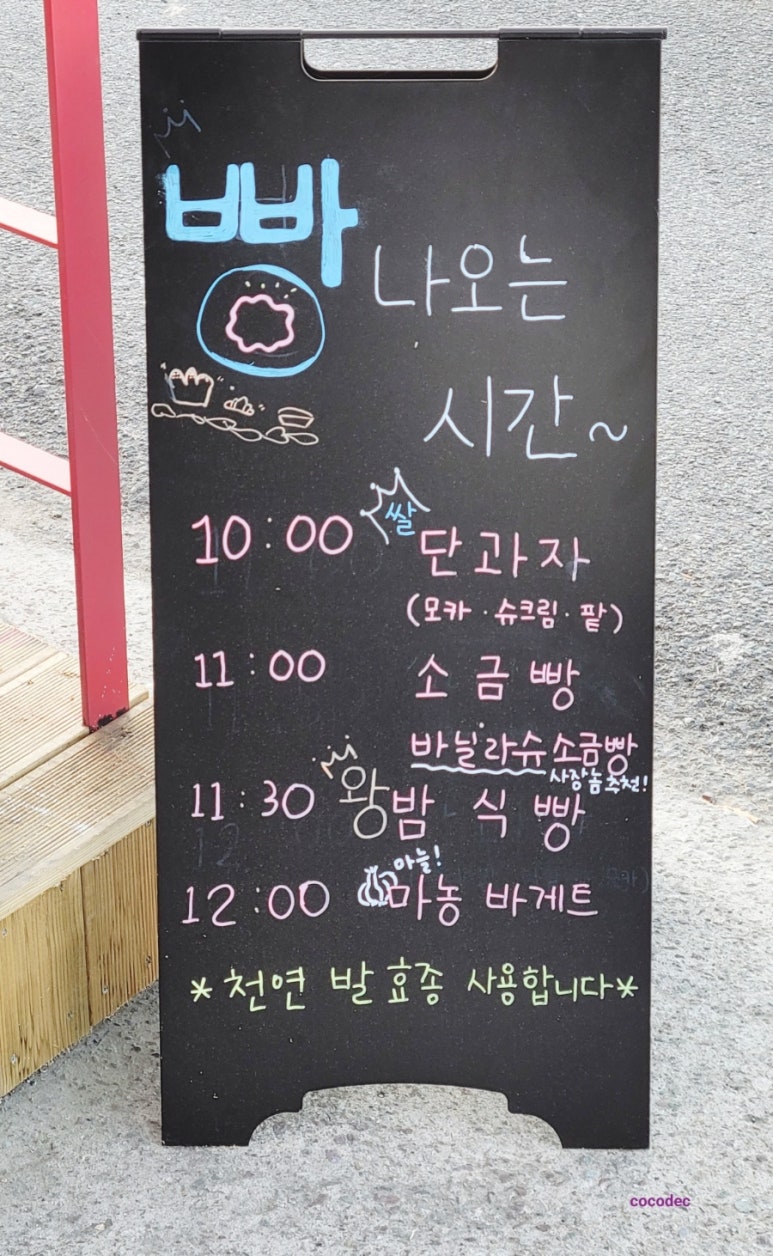 빵 나오는
시간~
10:00 쌀 단과자
(모카·슈크림·팥)
11:00 소금빵
바닐라슈소금빵
사장놈추천!
11:30 왕밤 식빵
마늘!
12:00 마농 바게트
*천연 발효종 사용합니다*
cocodec